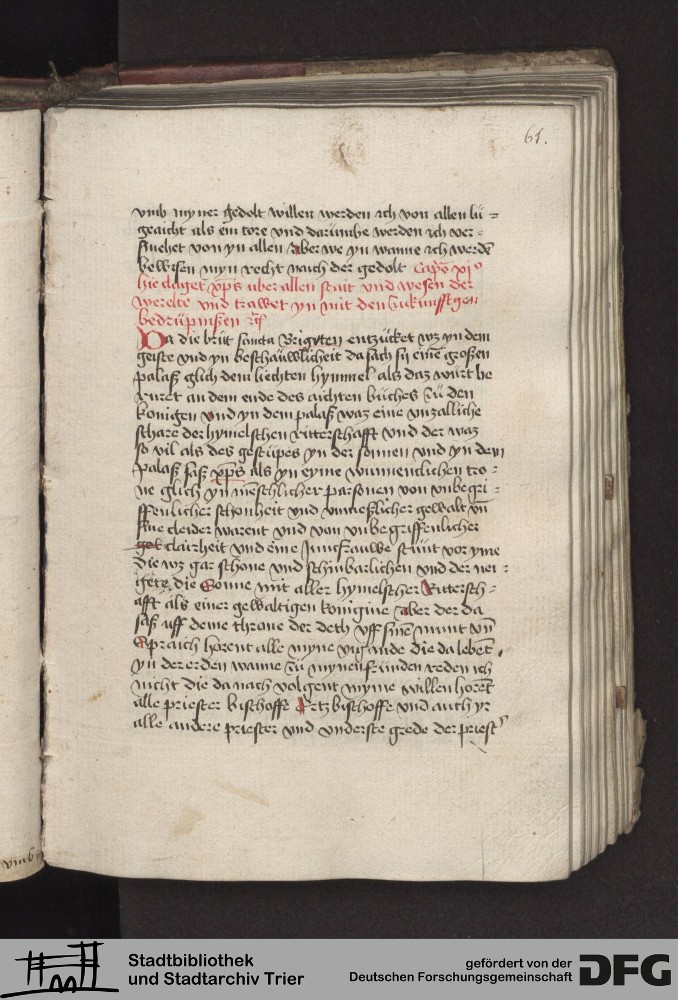 61.
vmb myner gedolt willen werden ich von allen lü=
geaicht als ein tore vnd darumbe werden ich ver=
smehet von yn allen Aber we yn wanne ich werdē
bewisen myn recht naich der gedolt Capo xio
hie claget xps uber allen stait vnd wesen der
werelte vnd trawet yn mit den zukunfftgen
bedrüpnißen
Da die brüt sancta Brigyten entzücket wz yn dem
geiste vnd yn beschäuwlicheit da sach sy einē großen
palaß glich dem liechten hymmel als daz würt be
ruret an dem ende des aichten büches zü den
konigen vnd yn dem palaß waz eine vnzalliche
schare der hymelschen ritterschafft vnd der waz
so vil als des gestüpes yn der sonnen vnd yn dem
palaß saß xps als yn eyme wunnenclichen tro=
ne glich yn menschlicher parsonen von vnbegri=
ffenlicher schonheit vnd vnmeßlicher gewalt vn̄
sine cleider warent vnd von vnbegriffenlicher
clairheit vnd eine Juncfrauwe stünt vor yme
die wz gar schone vnd schinbarlichen vnd der nei=
gete die Sonne mit aller hymelscher Rittersch=
afft als einer geweltigen konigine aber der da
saß uff deme throne der deth vff sinē munt vn̄
Spraich horent alle myne vigande die da lebēt
yn der erden wanne zü mynen fründen reden ich
nicht die da nach volgent myme willen horēt
alle priester bischoffe Ertzbischoffe vnd auch yr
alle andere priester vnd vnderste grede der priest
vmb
Stadtbibliothek
und Stadtarchiv Trier
gefördert von der
Deutschen Forschungsgemeinschaft
DFG